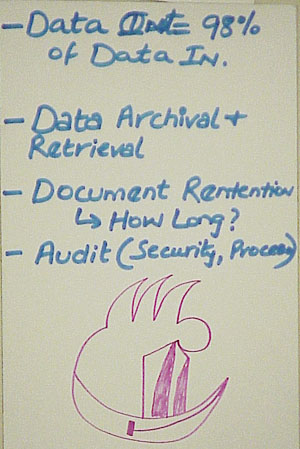 - Data Out = 98%
of Data In.
- Data Archival +
Retrieval
- Document Rentention
↳ How Long?
- Audit (Security, Process)